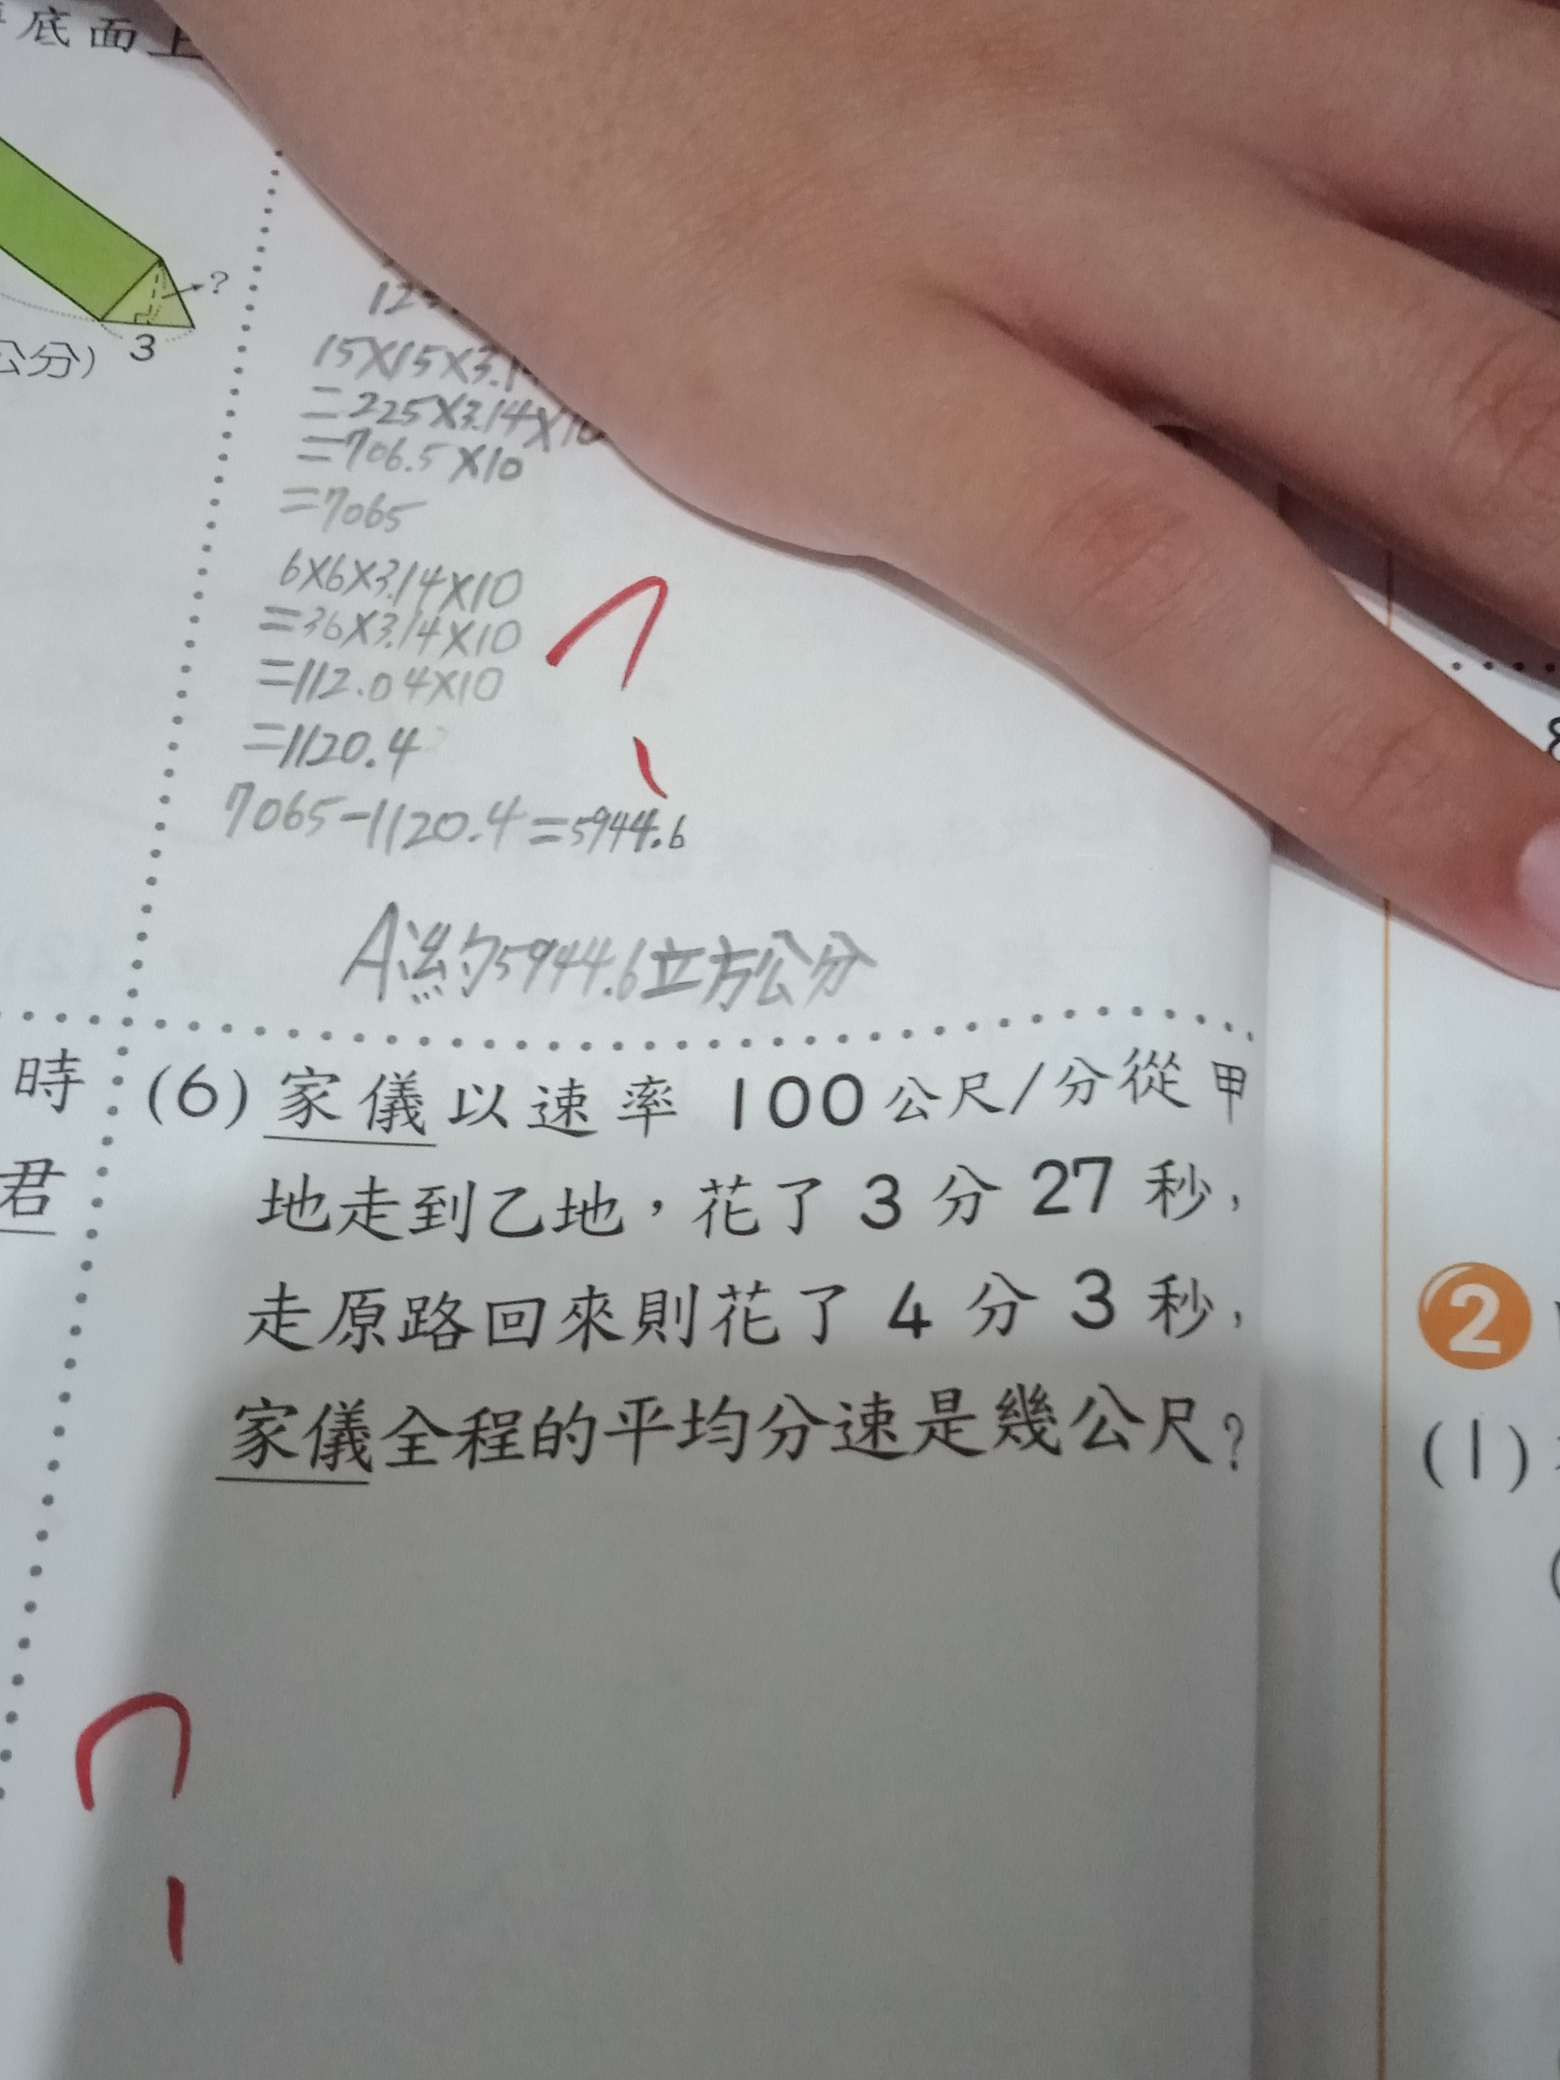 底面上
?
3
公分)
15×15×3.14
=225×3.14×10
=706.5×10
=7065
6×6×3.14×10
=36×3.14×10
=112.04×10
=1120.4
7065-1120.4=5944.6
A:約5944.6立方公分
時
君
(6)家儀以速率 100公尺/分從甲
地走到乙地，花了 3 分 27 秒，
走原路回來則花了 4 分 3 秒，
家儀全程的平均分速是幾公尺？
2
(1)